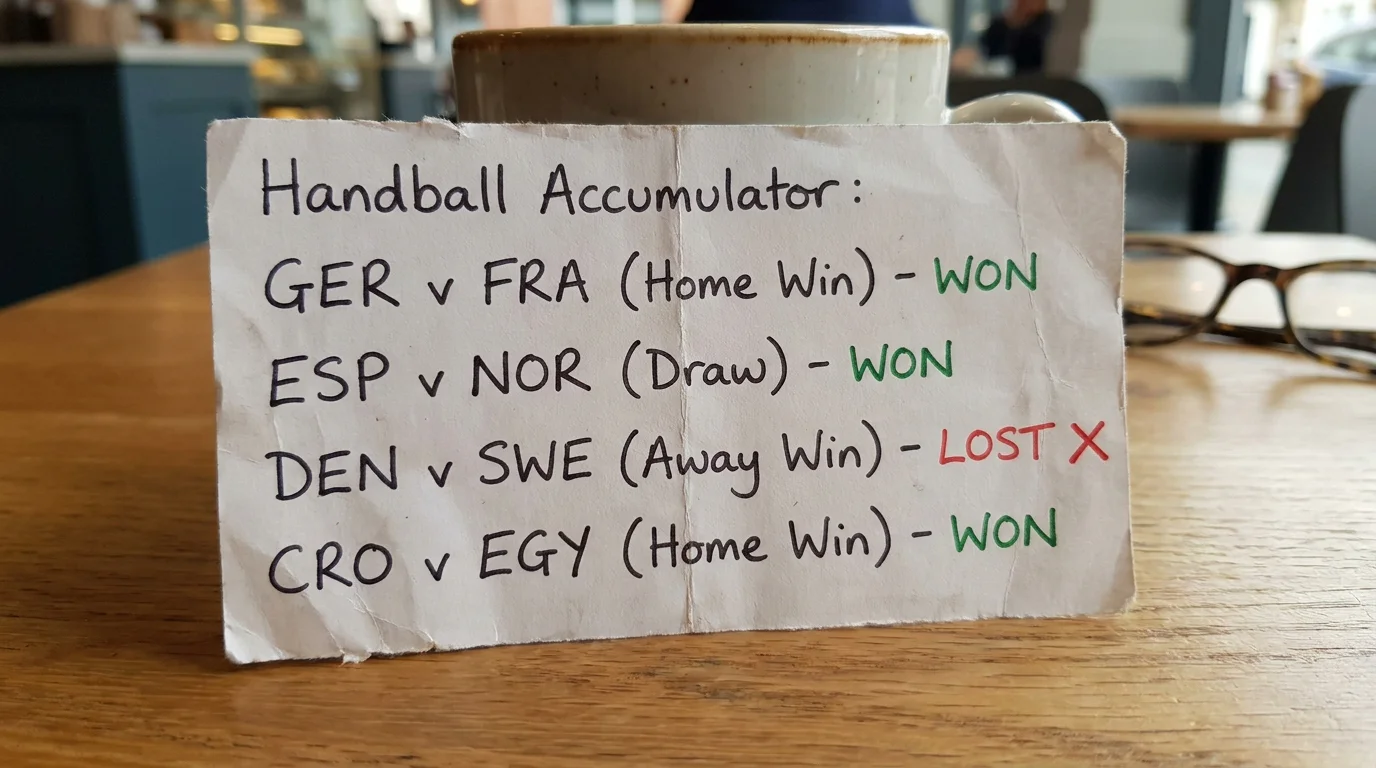 Handball Accumulator:
GER v FRA (Home Win) - WON
ESP v NOR (Draw) - WON
DEN v SWE (Away Win) - LOST X
CRO v EGY (Home Win) - WON